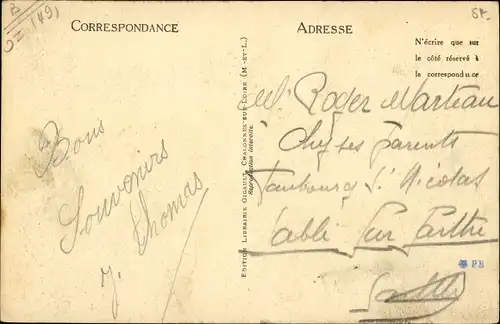 B
02 (49)
54.
CORRESPONDANCE
ADRESSE
N'écrire que sur
le côté réservé à
la correspond
EDITION LIBRAIRIE GIGAULT, CHALONNES-SUR-LOIRE (M.-ET-L.)
Reproduction interdite.
Bons
Souvenirs
J. Thomas
M. Roger Marteau
Chez ses parents
Faubourg St Nicolas
Sablé Sur Sarthe
PB
Sarthe